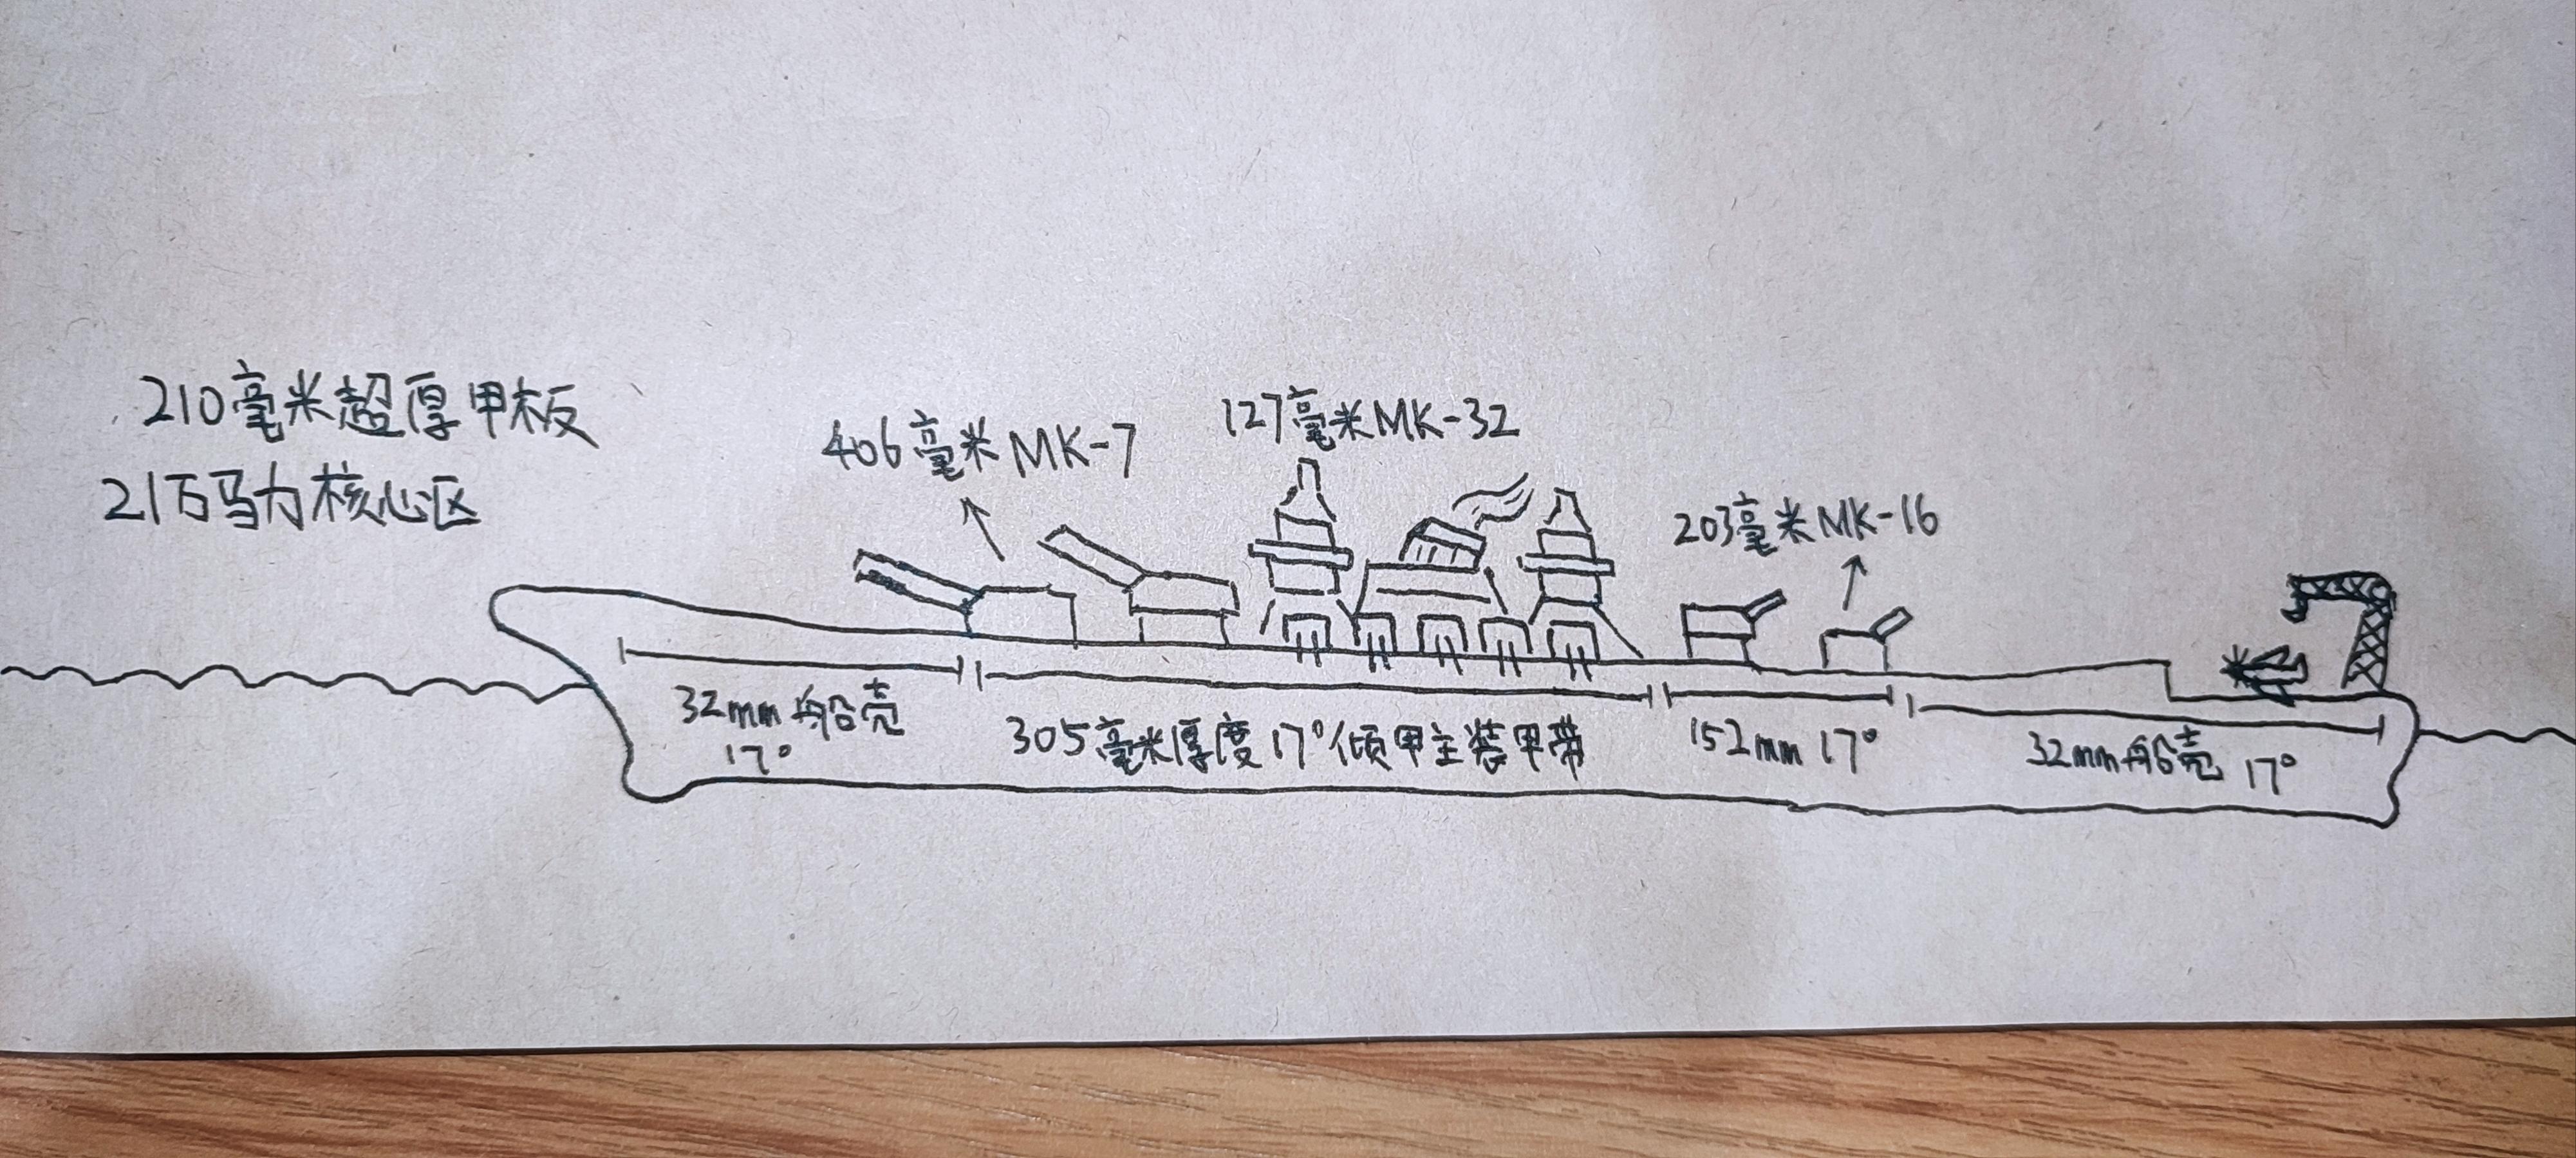 210毫米超厚甲板
21万马力核心区
406毫米MK-7
127毫米MK-32
203毫米MK-16
32mm船壳
17°
305毫米厚度17°倾甲主装甲带
152mm 17°
32mm船壳 17°